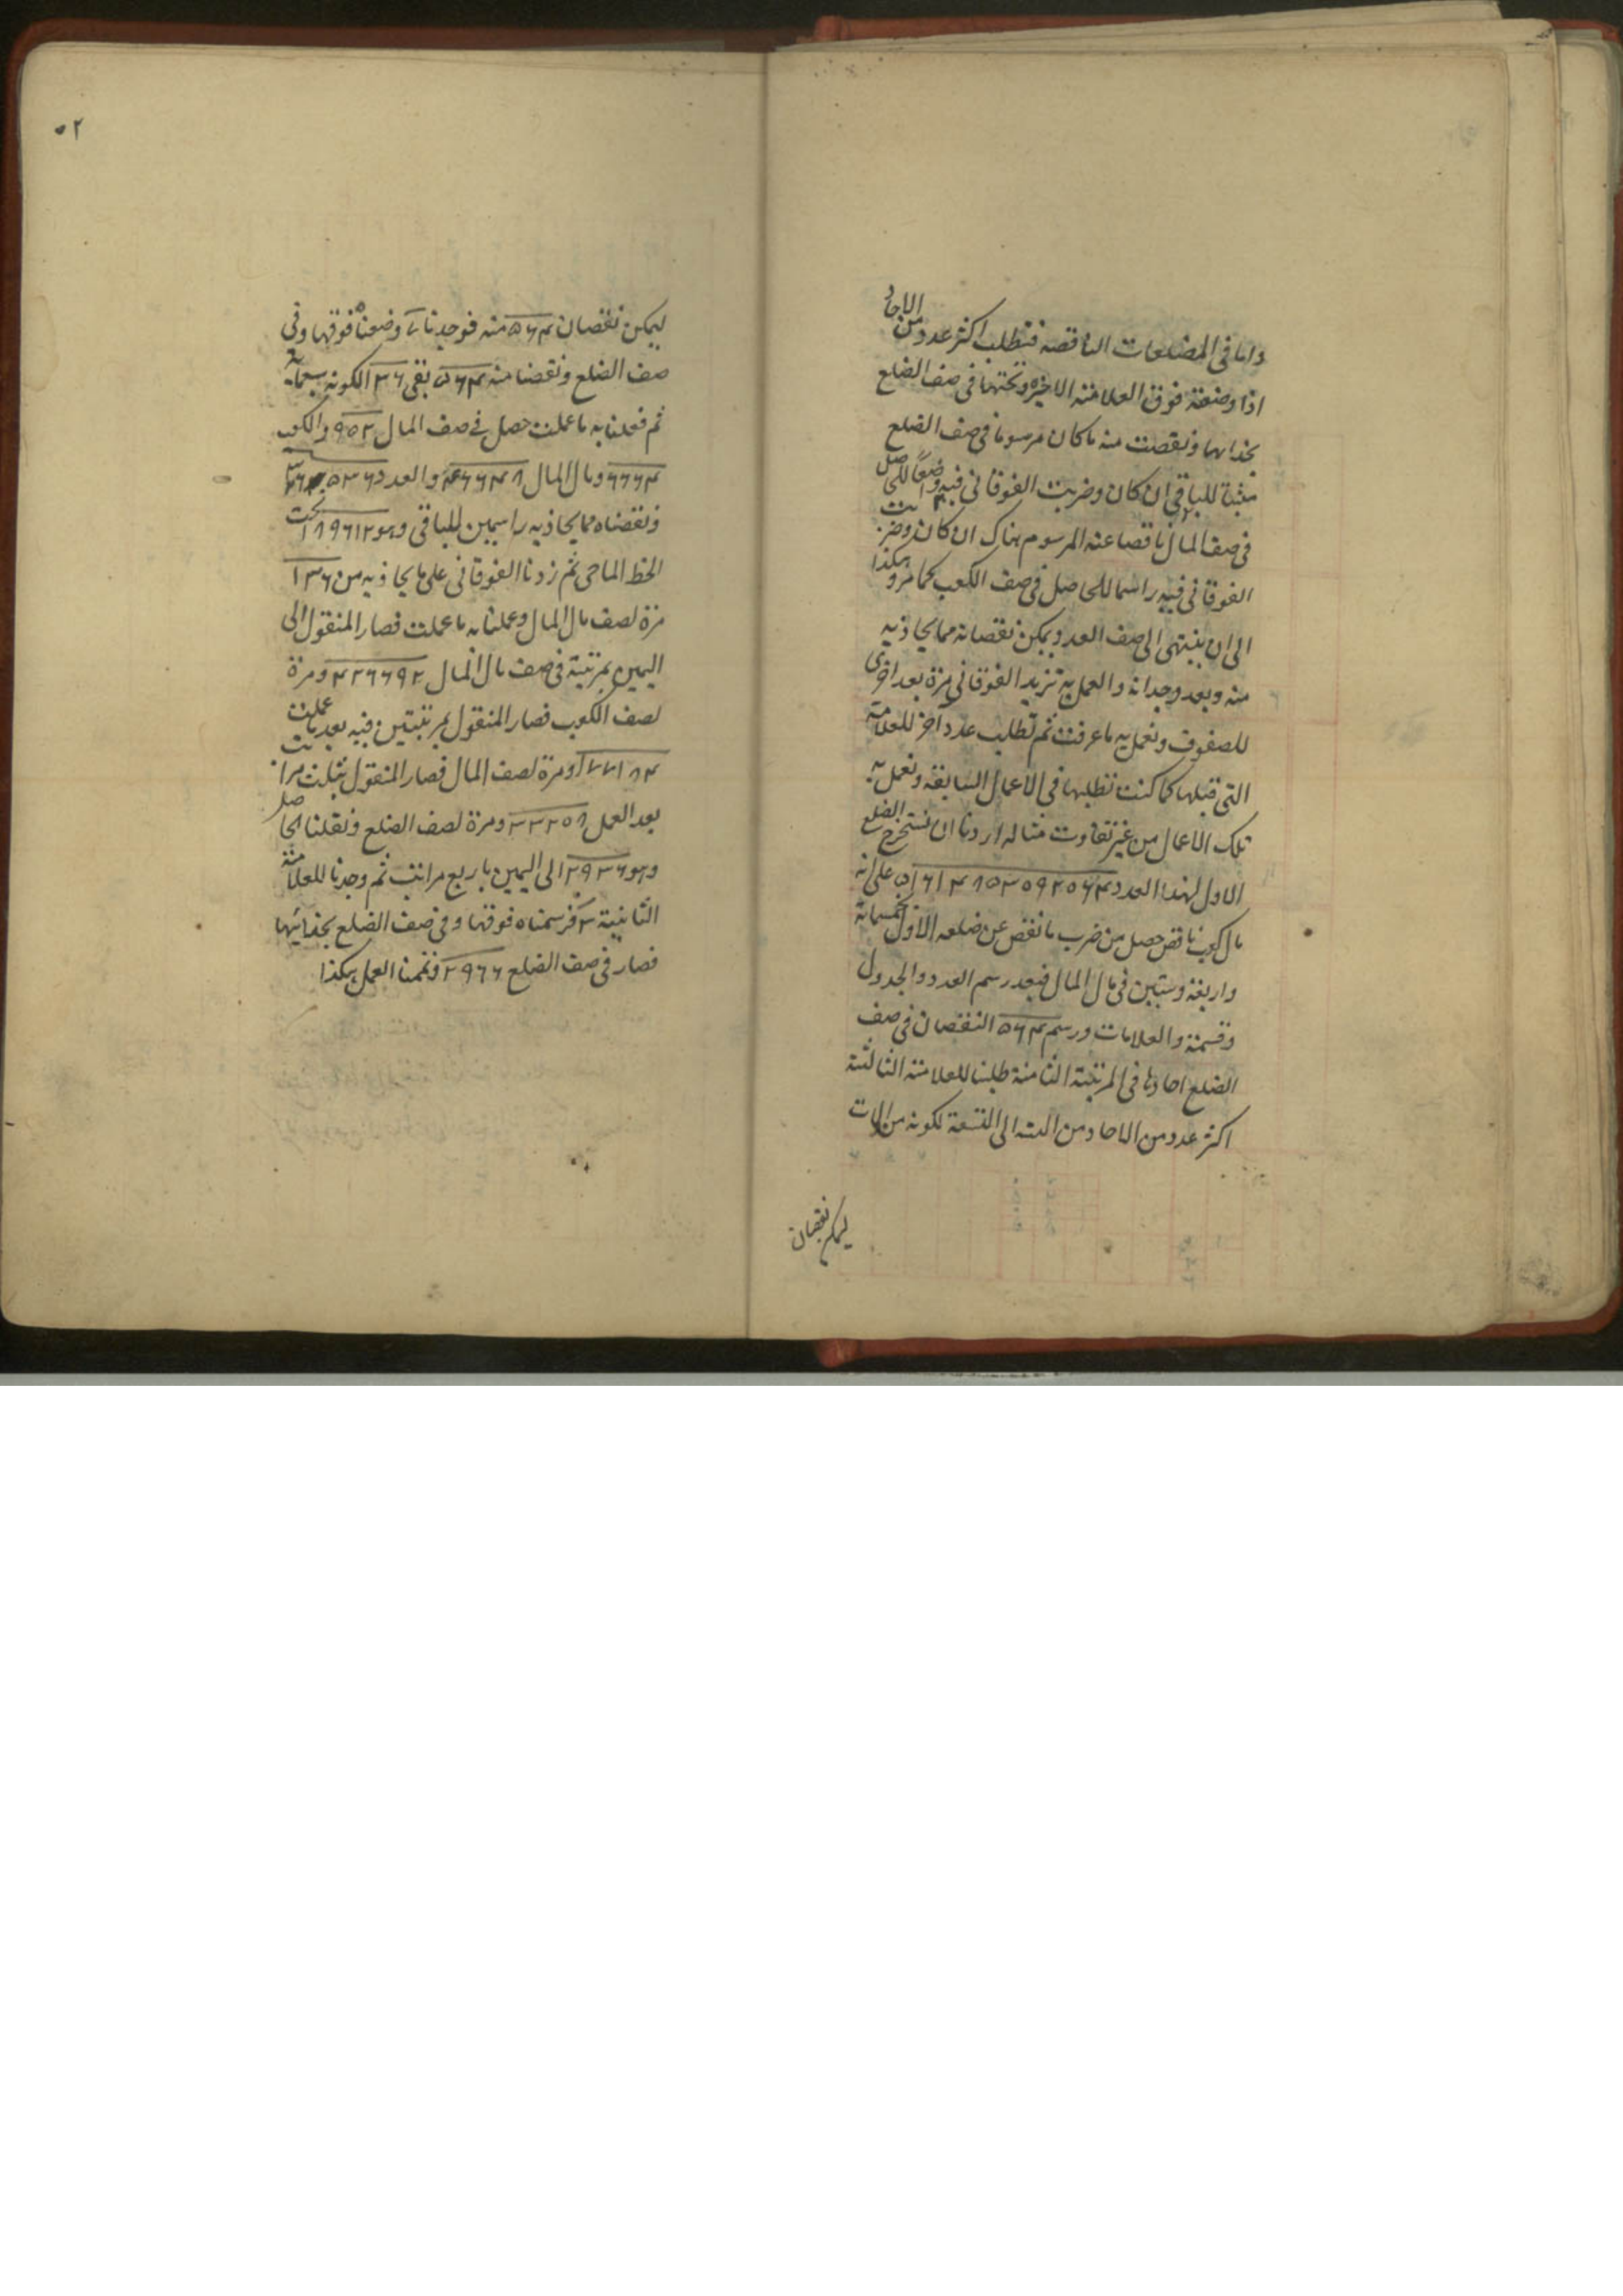 واما فی المضلعات الناقصة فتطلب اکثر عدد من الاحاد
اذا وضعته فوق العلامة الاخیرة وتحتها فی صف الضلع
بحذائها ونقصت منه ما کان مرسوما فی صف الضلع
مثبتا للباقی ان کان وضربت الفوقانی فیه وضعًا للحاصل
فی صف المال ناقصا عنه المرسوم هناک ان کان وضربت
الفوقانی فیه راسما للحاصل فی صف الکعب کما مر وهکذا
الی ان ینتهی الی صف العدد ویمکن نقصانه مما یحاذیه
منه وبعد وجدانه والعمل به تزید الفوقانی مرة بعد اخری
للصفوف وتعمل به ما عرفت ثم تطلب عددا آخر للعلامة
التی قبلها کما کنت تطلبها فی الاعمال السابقة وتعمل به
تلک الاعمال من غیر تفاوت مثاله اردنا ان نستخرج الضلع
الاول لهذا العدد ۵۱۶۱۴۸۵۳۵۹۲۵۶۴ علی انه
مال کعب ناقص حصل من ضرب ما نقص عن ضلعه الاول خمسمائة
واربعة وستین فی مال المال فبعد رسم العدد والجدول
وقسمته والعلامات ورسم ۵۶۴ النقصان فی صف
الضلع احادها فی المرتبة الثامنة طلبنا للعلامة الثالثة
اکثر عدد من الاحاد من الستة الی التسعة لکونه من المات
لیمکن نقصان
۵۲
لیمکن نقصان ۵۶۴ منه فوجدنا ۷ وضعناه فوقها وفی
صف الضلع ونقصنا منه ۵۶۴ بقی ۱۳۶ لکونه سبعمائة
ثم فعلنا به ما عملت حصل فی صف المال ۹۵۲ والکعب
۶۶۶۴ ومال المال ۴۶۶۴۸ والعدد ۳۲۶۵۳۶
فنقصناه مما یحاذیه راسمین للباقی وهو ۱۸۹۶۱۲ تحت
الخط الماحی ثم زدنا الفوقانی علی ما یحاذیه من ۱۳۶
مرة لصف مال المال وعملنا به ما عملت فصار المنقول الی
الیمین بمرتبة فی صف مال المال ۴۲۶۶۹۲ ومرة
لصف الکعب فصار المنقول بمرتبتین فیه بعد ما عملت
۱۷۷۱۸۴ ومرة لصف المال فصار المنقول بثلث مراتب
بعد العمل ۳۳۲۵۸ ومرة لصف الضلع ونقلنا الحاصل
وهو ۲۹۳۶ الی الیمین باربع مراتب ثم وجدنا للعلامة
الثانیة ۳ فرسمناه فوقها وفی صف الضلع بحذائها
فصار فی صف الضلع ۲۹۶۶ وتممنا العمل هکذا